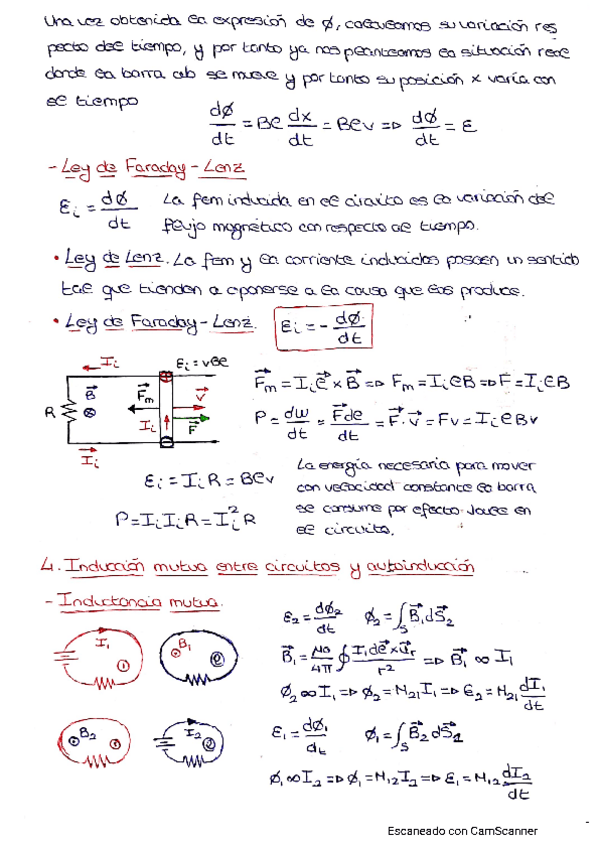 Una vez obtenida la expresión de Ø, calculamos su variación res
pecto del tiempo, y por tanto ya nos planteamos la situación real
donde la barra ab se mueve y por tanto su posición x varía con
el tiempo
dØ/dt = Bl dx/dt = Blv => dØ/dt = ε
- Ley de Faraday - Lenz
εi = dØ/dt La fem inducida en el circuito es la variación del
flujo magnético con respecto al tiempo.
• Ley de Lenz. La fem y la corriente inducidas poseen un sentido
tal que tienden a oponerse a la causa que las produce.
• Ley de Faraday - Lenz. εi = - dØ/dt
Ii εi = vBl
R B⃗ F⃗m v⃗ Ii F⃗
Ii
F⃗m = Ii l⃗ x B⃗ => Fm = Ii l B => F = Ii l B
P = dw/dt = F⃗dl/dt = F⃗·v⃗ = Fv = Ii l Bv
εi = Ii R = Blv
P = Ii Ii R = Ii² R
La energía necesaria para mover
con velocidad constante la barra
se consume por efecto Joule en
el circuito.
4. Inducción mutua entre circuitos y autoinducción
- Inductancia mutua.
I1 1 B1 2
ε2 = dØ2/dt Ø2 = ∫S B⃗1 dS⃗2
B⃗1 = μ0/4π ∮ I1 dl⃗ x u⃗r / r² => B⃗1 ∞ I1
Ø2 ∞ I1 => Ø2 = M21 I1 => ε2 = M21 dI1/dt
B2 1 I2 2
ε1 = dØ1/dt Ø1 = ∫S B⃗2 dS⃗1
Ø1 ∞ I2 => Ø1 = M12 I2 => ε1 = M12 dI2/dt
Escaneado con CamScanner